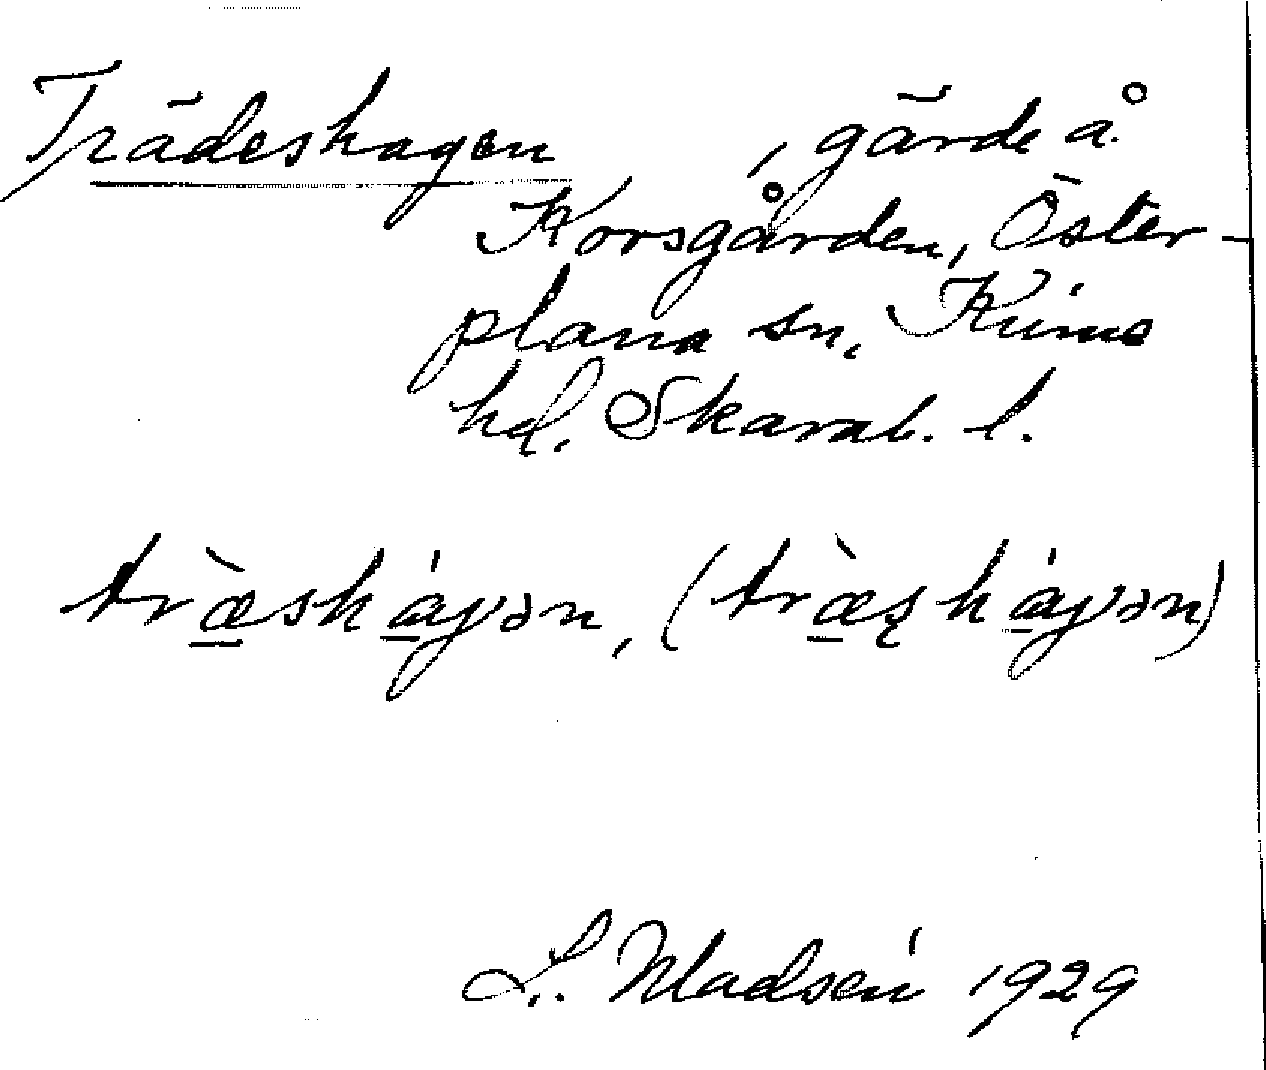 Trädeshagen, gärde å
Korsgården, Öster-
plana sn, Kinne
hd. Skarab. l.
tr<u>æ̀</u>sk<u>á</u>gən, (tr<u>æ̀</u>s̨h<u>á</u>gən)
L. Madsén 1929